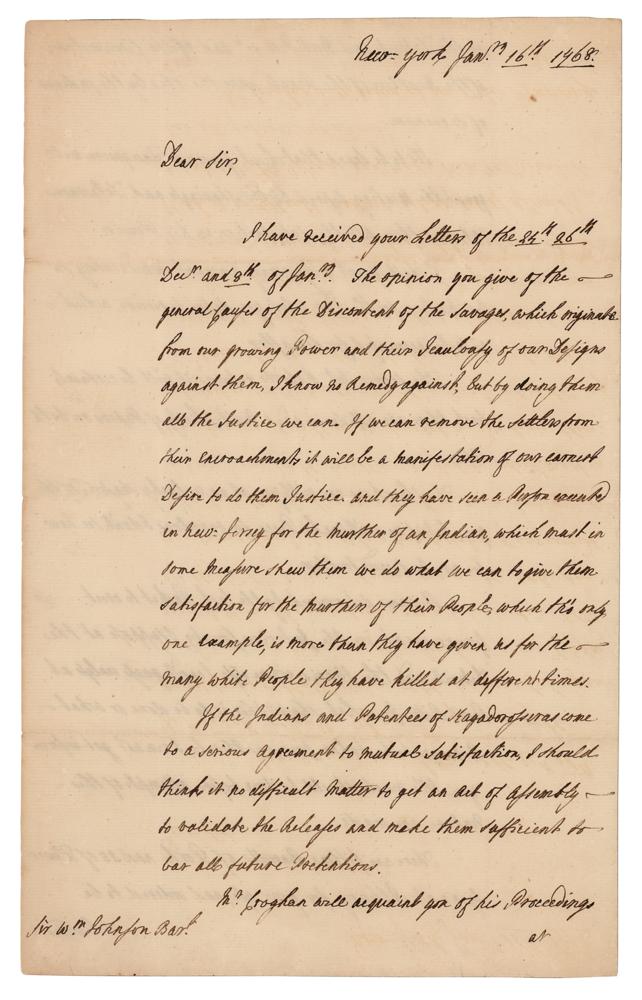 New-York Janry 16th 1768.
Dear Sir,
I have received your Letters of the 24th 26th
Decr and 8th of Janry. The opinion you give of the
general Causes of the Discontent of the Savages, which originate
from our growing Power and their Jealousy of our Designs
against them, I know no Remedy against, but by doing them
all the Justice we can. If we can remove the Settlers from
their Encroachments it will be a manifestation of our earnest
Desire to do them Justice. and they have seen a Person executed
in New-Jersey for the Murther of an Indian, which must in
some Measure shew them we do what we can to give them
satisfaction for the Murthers of their People, which tho' only
one example, is more than they have given us for the
many white People they have killed at different times.
If the Indians and Patentees of come
to a serious Agreement to mutual Satisfaction, I should
think it no difficult Matter to get an Act of Assembly
to validate the Releases and make them sufficient to
bar all future Pretentions.
Mr Croghan will acquaint you of his Proceedings
at
Sir Wm Johnson Bart